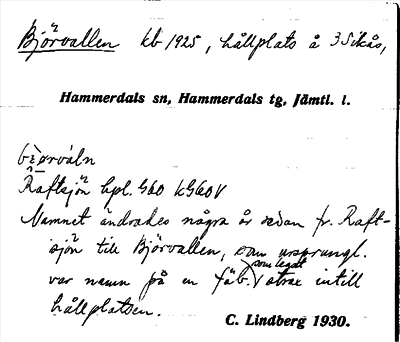 Björvallen kb 1925, hållplats å 3 Sikås,
Hammerdals sn, Hammerdals tg, Jämtl. l.
bi̯ørváln
Raftsjön hpl. G60 kSG60V
Namnet ändrades några år sedan fr. Raft-
sjön till Björvallen, som ursprungl.
var namn på en fäb. som legat strax intill
hållplatsen.
C. Lindberg 1930.